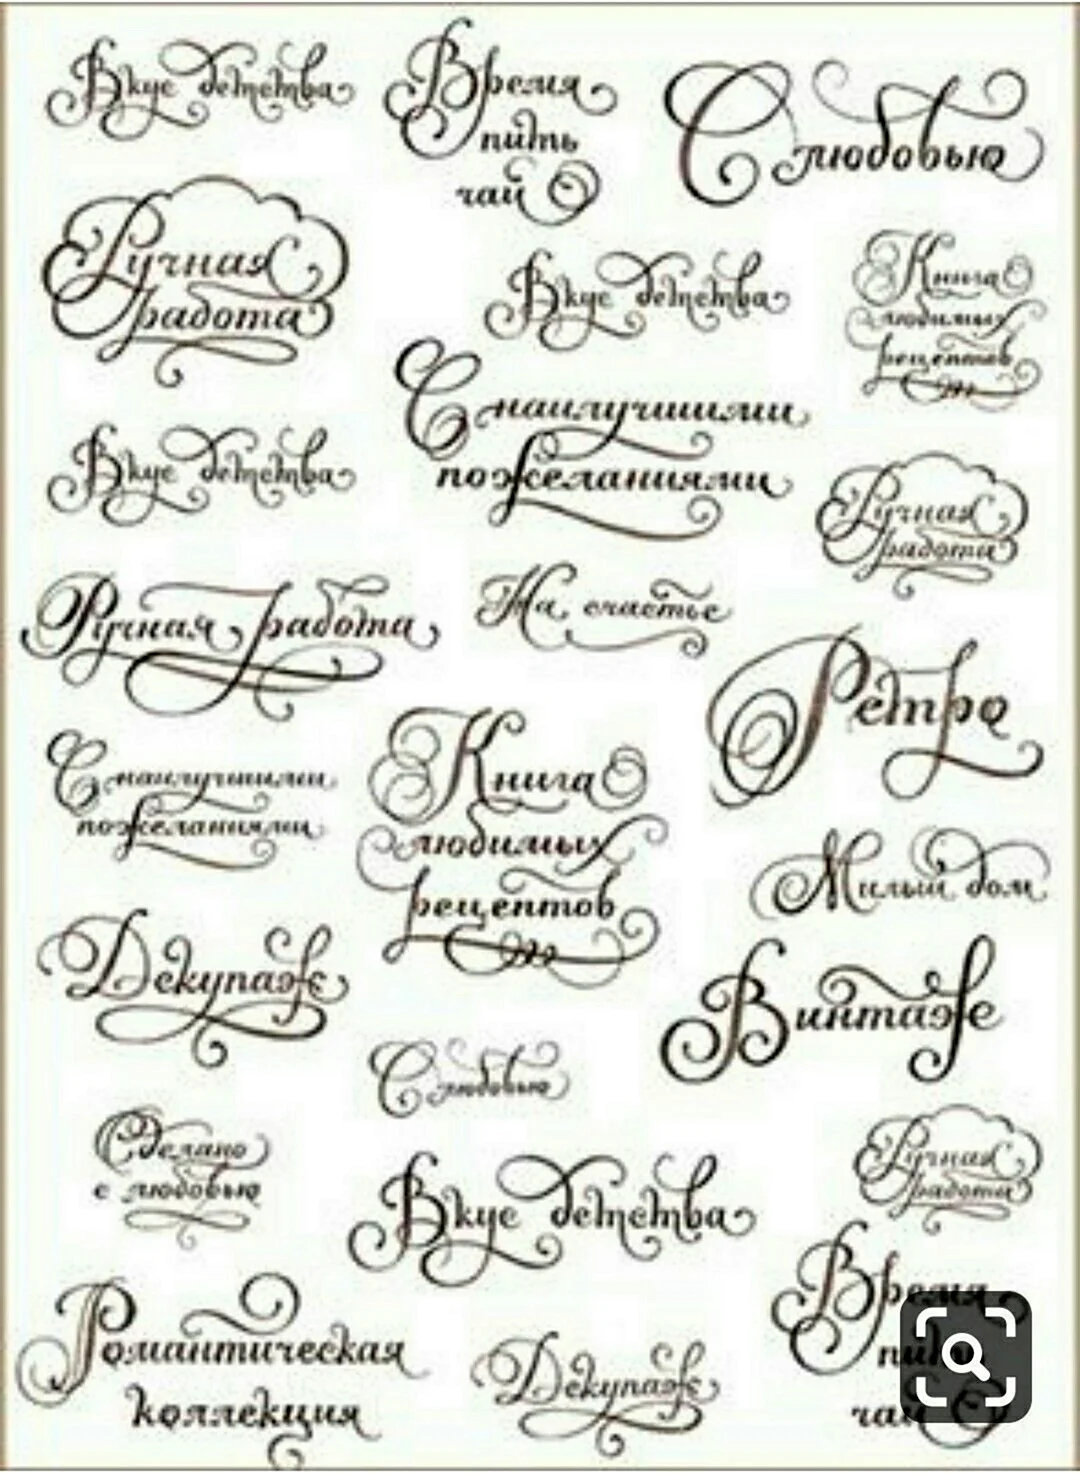 Вкус детства
Время
пить
чай
С любовью
Ручная
работа
Вкус детства
Книга
любимых
рецептов
С наилучшими
пожеланиями
Вкус детства
Ручная
работа
Ручная работа
На счастье
Ретро
С наилучшими
пожеланиями
Книга
любимых
рецептов
Милый дом
Декупаж
Винтаж
С любовью
Сделано
с любовью
Ручная
работа
Вкус детства
Время
пить
чай
Романтическая
коллекция
Декупаж